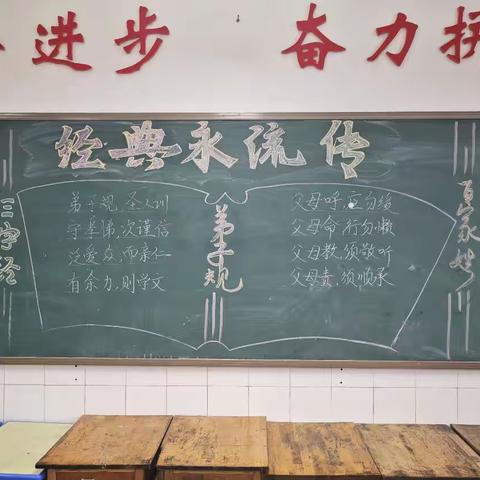 进步 奋力
经典永流传
三字经
弟子规,圣人训
守孝弟,次谨信
泛爱众,而亲仁
有余力,则学文
弟子规
父母呼,应勿缓
父母命,行勿懒
父母教,须敬听
父母责,须顺承
百家姓